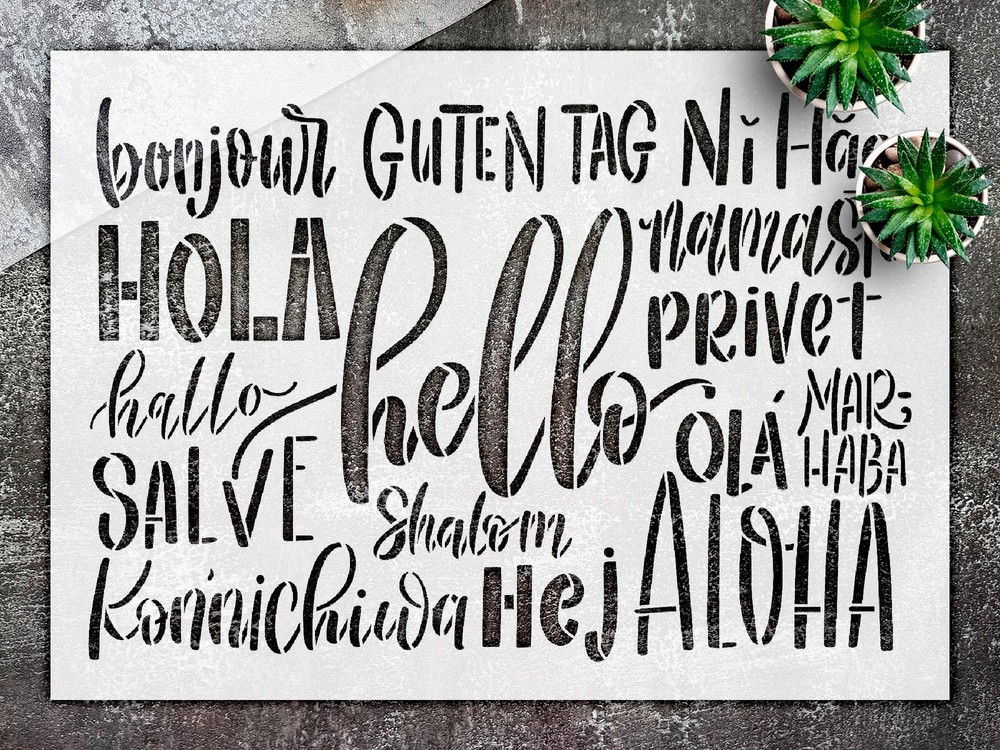 bonjour GUTEN TAG Ni Hǎo
HOLA hello namast
PRiveT
hallo OLÁ MAR-
HABA
SALVE Shalom ALOHA
Konnichiwa Hej